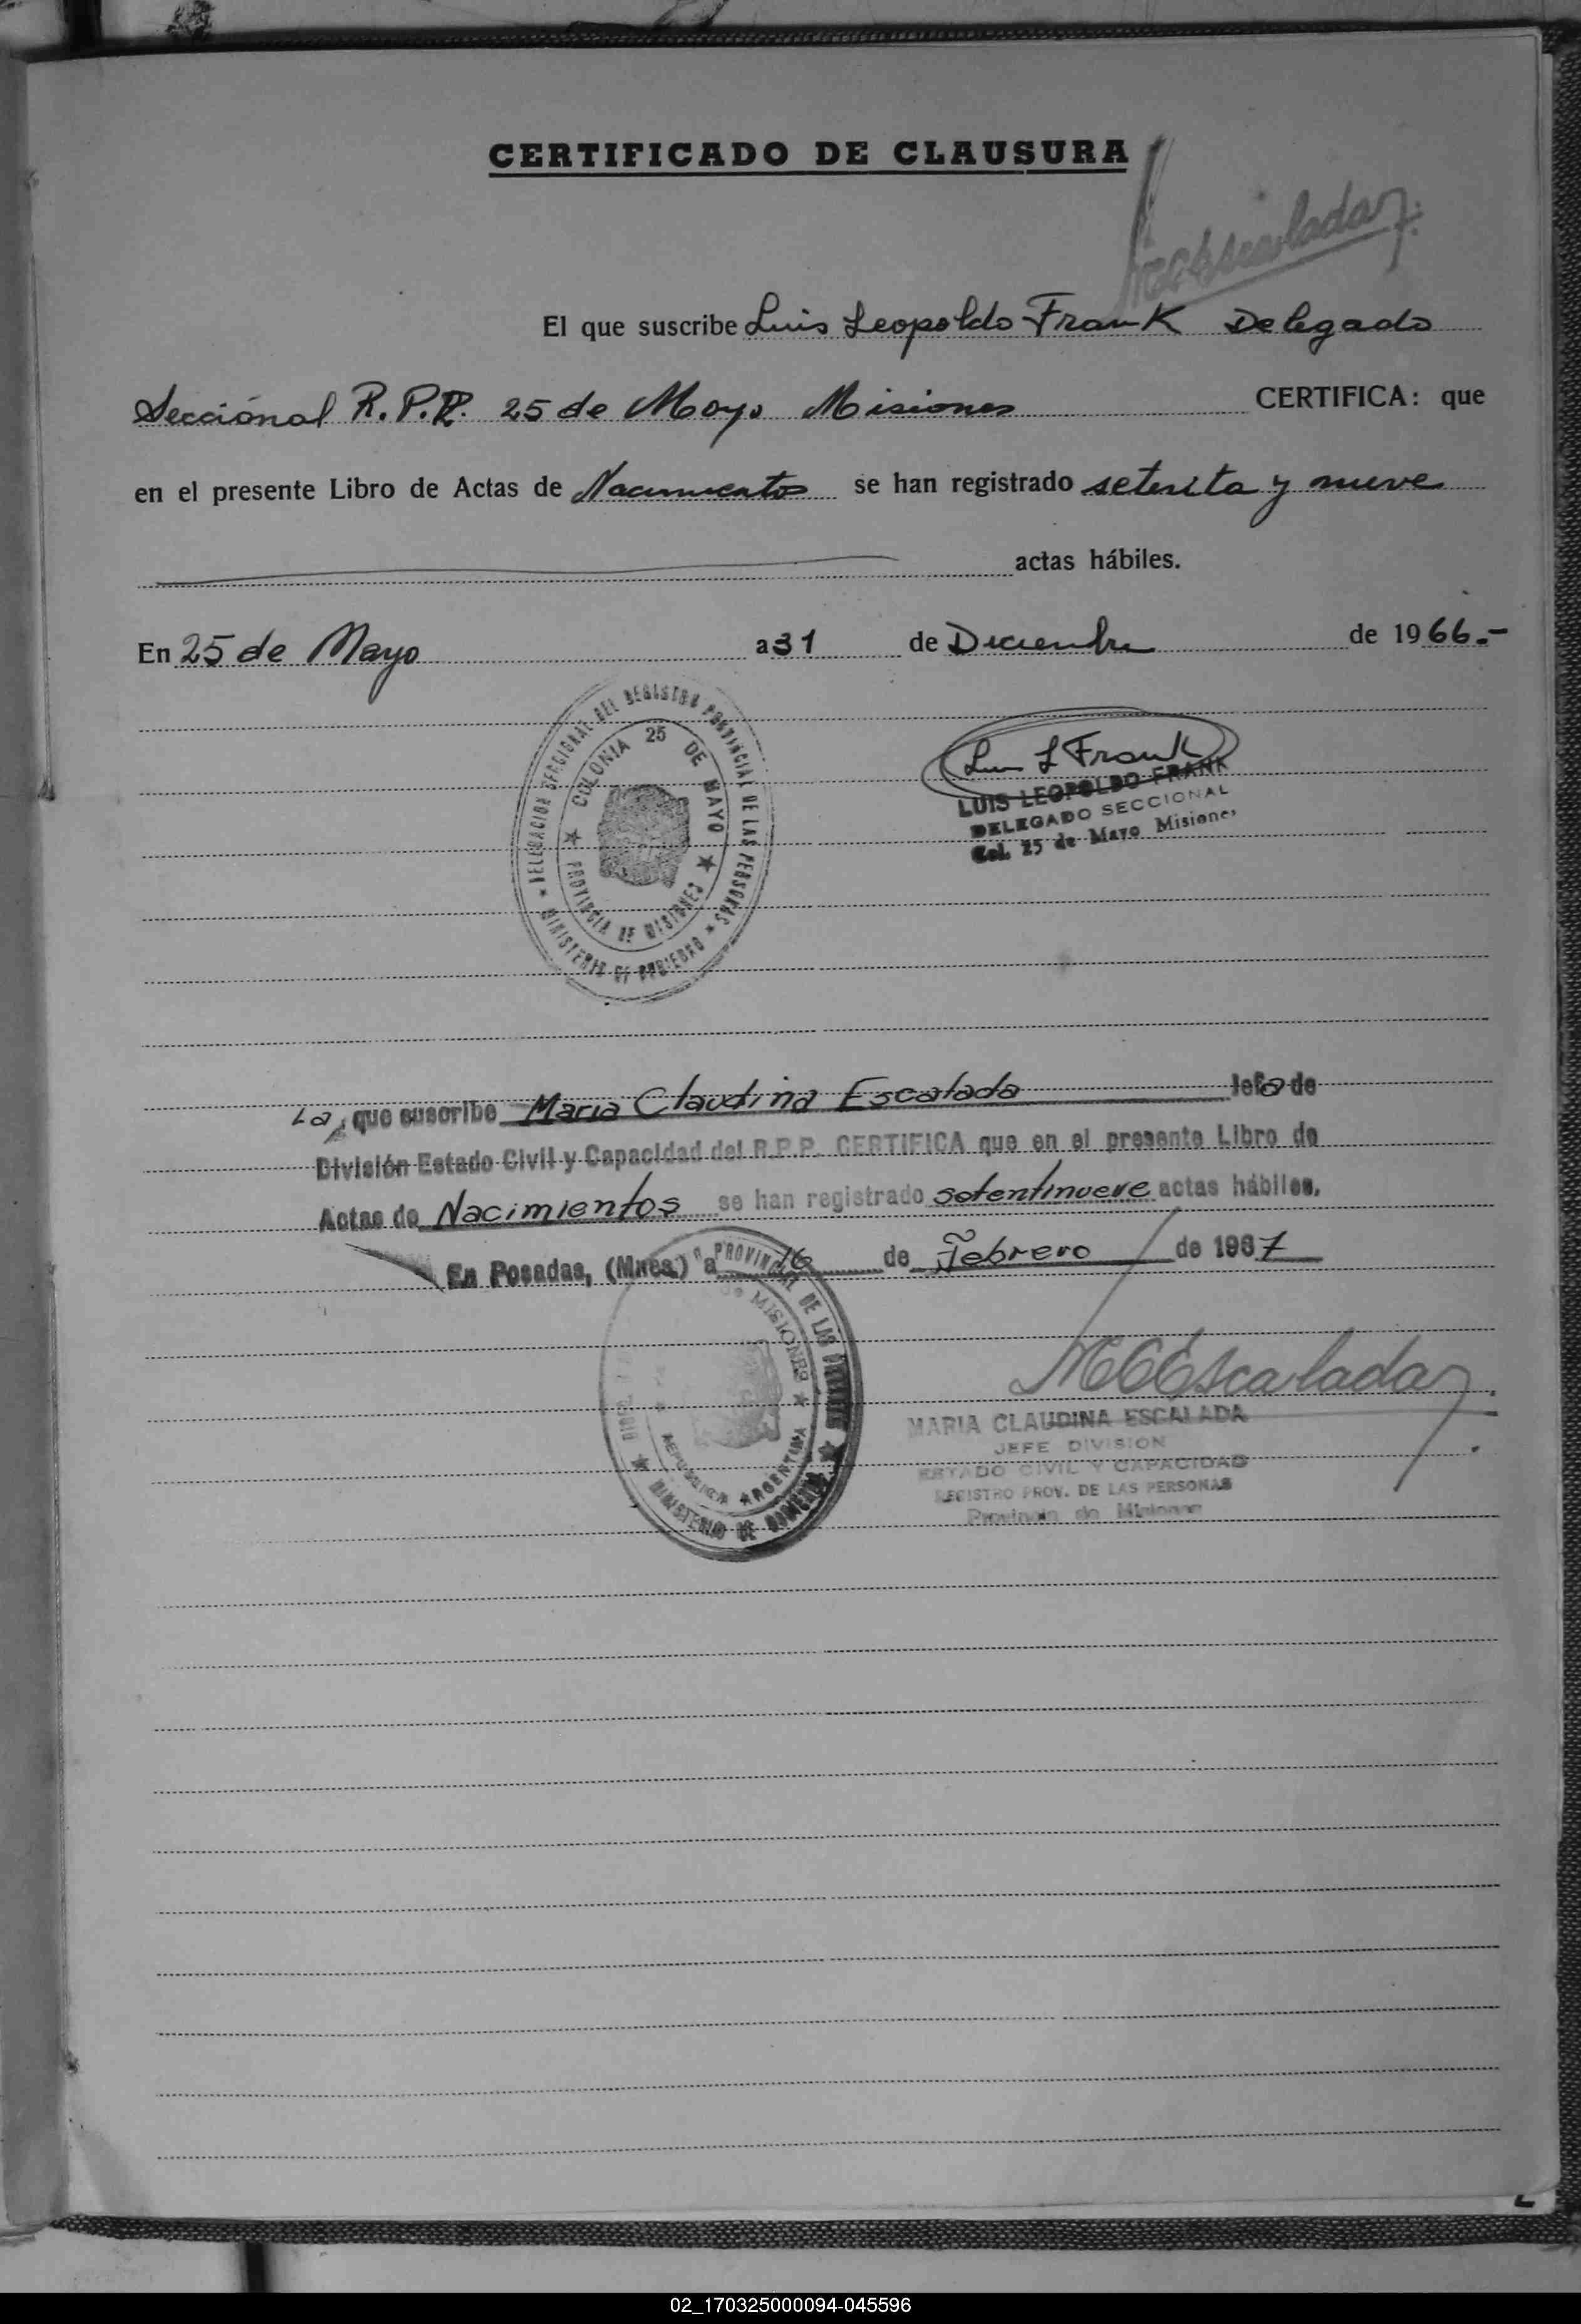 CERTIFICADO DE CLAUSURA
El que suscribe Luis Leopoldo Frank Delegado
Secciónal R.P.P. 25 de Mayo Misiones CERTIFICA: que
en el presente Libro de Actas de Nacimientos se han registrado setenta y nueve
actas hábiles.
En 25 de Mayo a 31 de Diciembre de 1966.-
DELEGACION SECCIONAL DEL REGISTRO PROVINCIAL DE LAS PERSONAS
MINISTERIO DE GOBIERNO
COLONIA 25 DE MAYO
PROVINCIA DE MISIONES
Luis L Frank
LUIS LEOPOLDO FRANK
DELEGADO SECCIONAL
Col. 25 de Mayo Misiones
La que suscribe Maria Claudina Escalada Jefa de
División Estado Civil y Capacidad del R.P.P. CERTIFICA que en el presente Libro de
Actas de Nacimientos se han registrado setentinueve actas hábiles.
En Posadas, (Mnes.) a 16 de Febrero de 1967
PROVINCIAL DE LAS
MISIONES
REPUBLICA ARGENTINA
MINISTERIO DE GOBIERNO
MCEscalada
MARIA CLAUDINA ESCALADA
JEFE DIVISION
ESTADO CIVIL Y CAPACIDAD
REGISTRO PROV. DE LAS PERSONAS
Provincia de Misiones
02_170325000094-045596